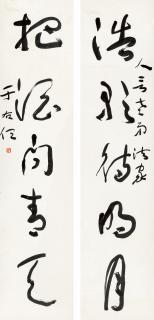 浩歌待明月
法家
把酒問青天
于右任